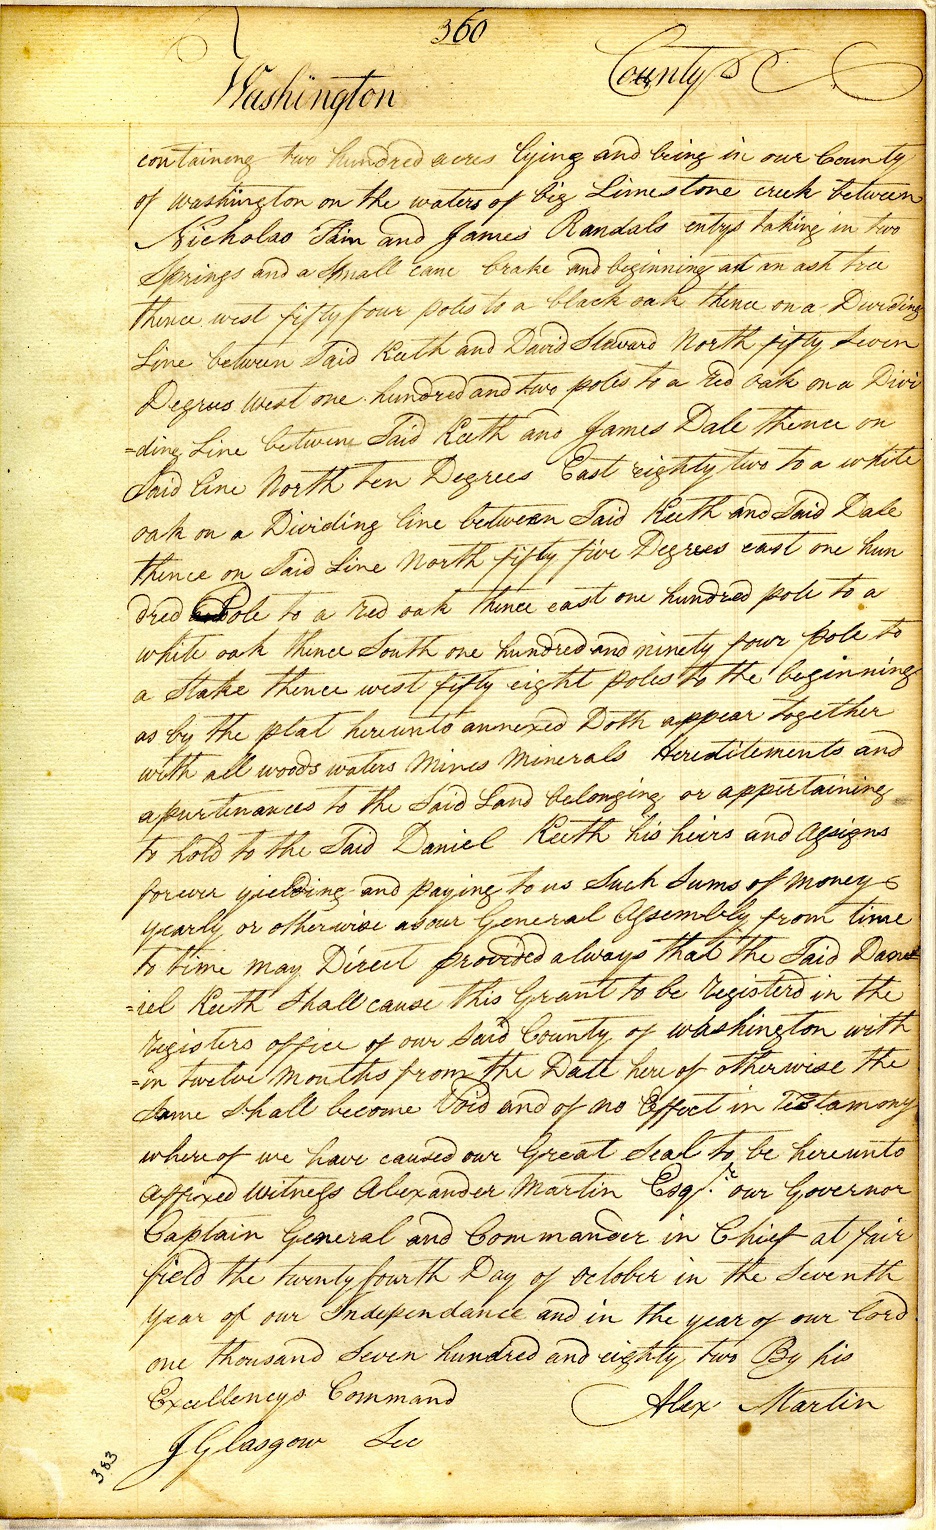 360
Washington County
containing two hundred acres lying and being in our County
of washington on the waters of big Limestone creek between
Nicholas Fain and James Randals entrys taking in two
Springs and a Small cane brake and beginning at an ash tree
thence west fifty four poles to a black oak thence on a Dividing
Line between Said Keeth and David Steward North fifty Seven
Degrees West one hundred and two poles to a red oak on a Divi
=ding Line between Said Keeth and James Dale thence on
Said line North ten Degrees East eighty two to a white
oak on a Dividing line between Said Keeth and Said Dale
thence on Said Line North fifty five Degrees east one hun
dred Pole to a red oak thence east one hundred pole to a
white oak thence South one hundred and ninety four pole to
a Stake thence west fifty eight poles to the beginning
as by the plat hereunto annexed Doth appear together
with all woods waters Mines Minerals Hereditements and
apurtenances to the Said Land belonging or appertaining
to hold to the Said Daniel Keeth his heirs and Assigns
forever yielding and paying to us Such Sums of money
yearly or otherwise as our General Assembly from time
to time may Direct provided always that the Said Dan
=iel Keeth Shall cause this Grant to be registerd in the
registers office of our Said County of washington with
=in twelve Months from the Date here of otherwise the
Same Shall become Void and of no Effect in Testamony
where of we have caused our Great Seal to be hereunto
Affixed Witness Alexander Martin Esqr. our Governor
Captain General and Commander in Chief at fair
field the twenty fourth Day of October in the Seventh
year of our Independance and in the year of our Lord
one thousand Seven hundred and eighty two By his
Excellencys Command Alex Martin
J Glasgow Sec
383